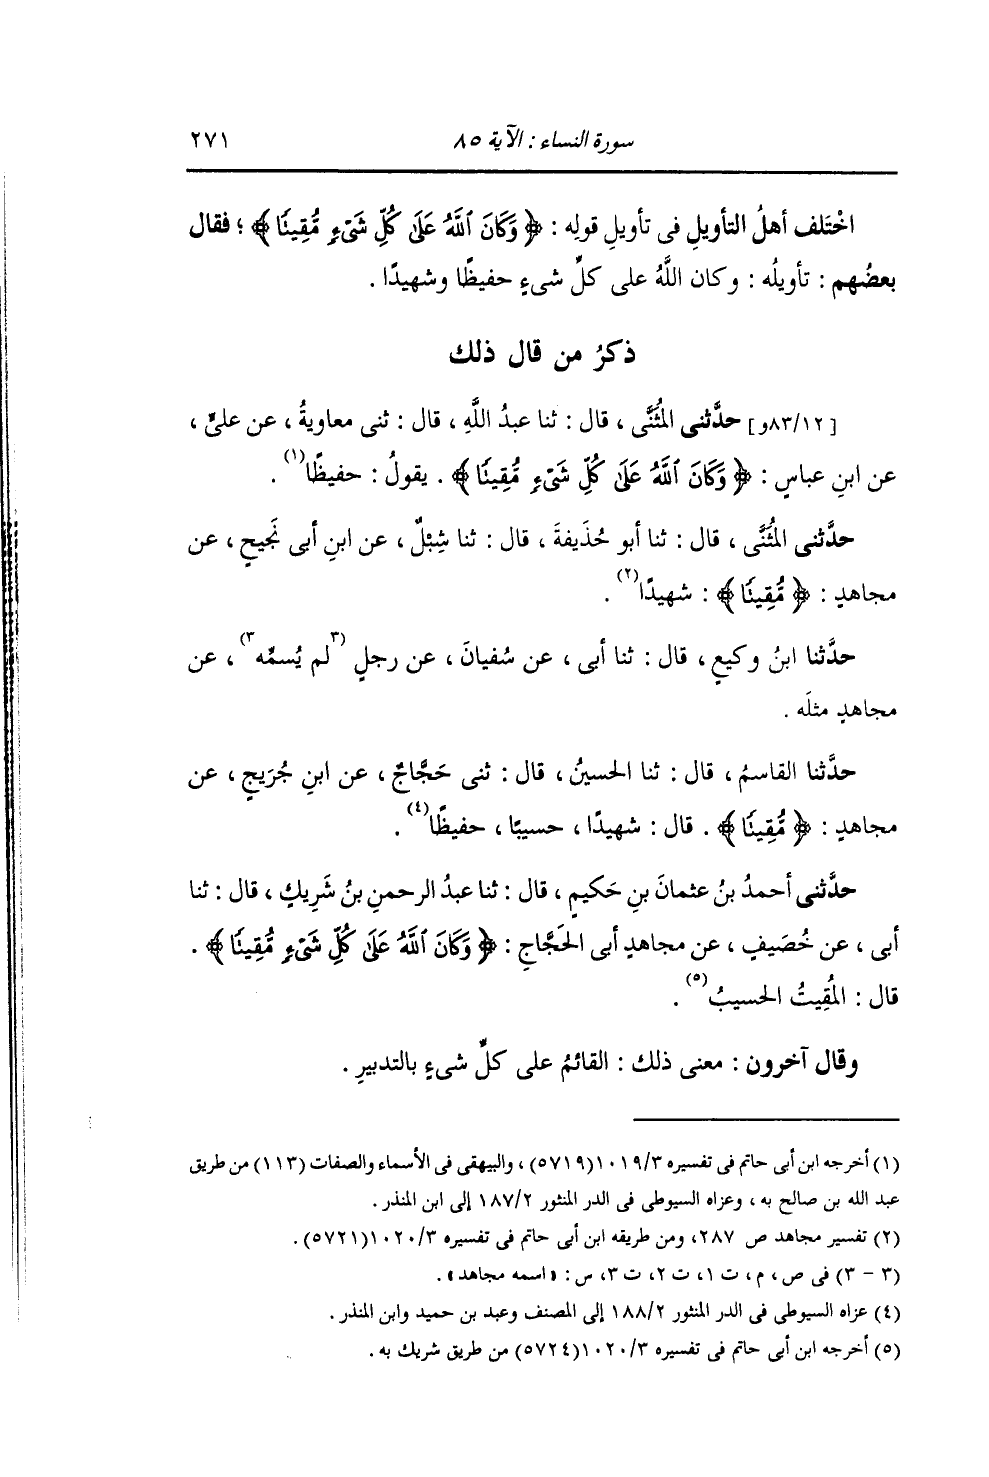 سورة النساء : الآية ٨٥ ٢٧١
اخْتَلف أهلُ التأويلِ فى تأويلِ قولِه : ﴿ وَكَانَ ٱللَّهُ عَلَىٰ كُلِّ شَىْءٍ مُّقِيتًا ﴾ ؛ فقال
بعضُهم : تأويلُه : وكان اللَّهُ على كلِّ شىءٍ حفيظًا وشهيدًا .
ذكرُ من قال ذلك
[ ٨٣/١٢و] حدَّثنى المُثَنَّى ، قال : ثنا عبدُ اللَّهِ ، قال : ثنى معاويةُ ، عن علىٍّ ،
عن ابنِ عباسٍ : ﴿ وَكَانَ ٱللَّهُ عَلَىٰ كُلِّ شَىْءٍ مُّقِيتًا ﴾ . يقولُ : حفيظًا(١) .
حدَّثنى المُثَنَّى ، قال : ثنا أبو حُذَيفةَ ، قال : ثنا شِبْلٌ ، عن ابنِ أبى نَجيحٍ ، عن
مجاهدٍ : ﴿ مُّقِيتًا ﴾ : شهيدًا(٢) .
حدَّثنا ابنُ وكيعٍ ، قال : ثنا أبى ، عن سُفيانَ ، عن رجلٍ (٣لم يُسمِّه٣) ، عن
مجاهدٍ مثلَه .
حدَّثنا القاسمُ ، قال : ثنا الحسينُ ، قال : ثنى حَجَّاجٌ ، عن ابنِ جُرَيجٍ ، عن
مجاهدٍ : ﴿ مُّقِيتًا ﴾ . قال : شهيدًا ، حسيبًا ، حفيظًا(٤) .
حدَّثنى أحمدُ بنُ عثمانَ بنِ حَكيمٍ ، قال : ثنا عبدُ الرحمنِ بنُ شَرِيكٍ ، قال : ثنا
أبى ، عن خُصَيفٍ ، عن مجاهدٍ أبى الحَجَّاجِ : ﴿ وَكَانَ ٱللَّهُ عَلَىٰ كُلِّ شَىْءٍ مُّقِيتًا ﴾ .
قال : المُقِيتُ الحسيبُ(٥) .
وقال آخرون : معنى ذلك : القائمُ على كلِّ شىءٍ بالتدبيرِ .
(١) أخرجه ابن أبى حاتم فى تفسيره ١٠١٩/٣ (٥٧١٩) ، والبيهقى فى الأسماء والصفات (١١٣) من طريق
عبد الله بن صالح به ، وعزاه السيوطى فى الدر المنثور ١٨٧/٢ إلى ابن المنذر .
(٢) تفسير مجاهد ص ٢٨٧، ومن طريقه ابن أبى حاتم فى تفسيره ١٠٢٠/٣ (٥٧٢١) .
(٣ - ٣) فى ص ، م ، ت ١، ت ٢، ت ٣، س : « اسمه مجاهد» .
(٤) عزاه السيوطى فى الدر المنثور ١٨٨/٢ إلى المصنف وعبد بن حميد وابن المنذر .
(٥) أخرجه ابن أبى حاتم فى تفسيره ١٠٢٠/٣ (٥٧٢٤) من طريق شريك به .